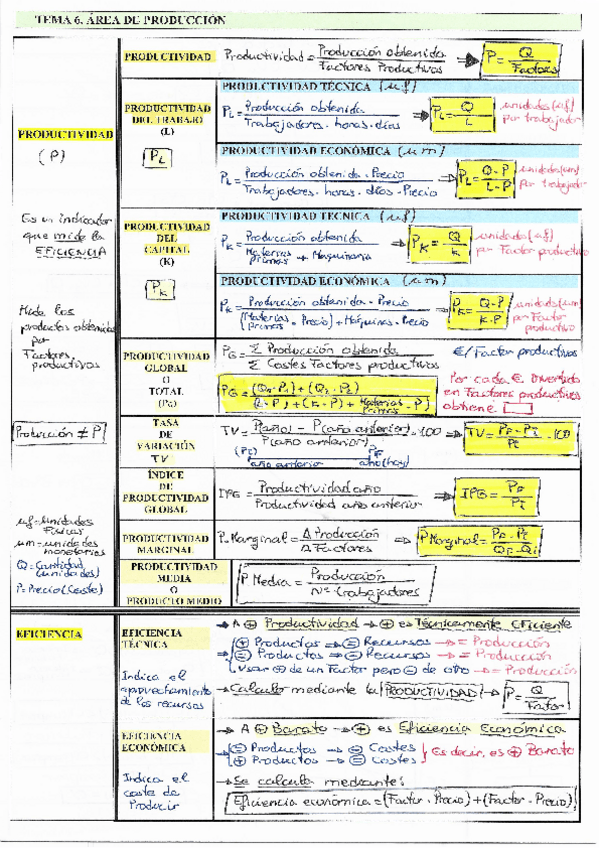 TEMA 6. ÁREA DE PRODUCCIÓN
PRODUCTIVIDAD
(P)
Es un indicador
que mide la
EFICIENCIA
Mide los
productos obtenidos
por
Factores
productivos
Producción ≠ P
uf=unidades
físicas
um=unidades
monetarias
Q=Cantidad
(unidades)
P=Precio (Coste)
PRODUCTIVIDAD
Productividad = Producción obtenida / Factores Productivos → P = Q / Factores
PRODUCTIVIDAD
DEL TRABAJO
(L)
PL
PRODUCTIVIDAD TÉCNICA (uf)
PL = Producción obtenida / Trabajadores · horas · días → PL = Q / L
unidades (uf)
por trabajador
PRODUCTIVIDAD ECONÓMICA (um)
PL = Producción obtenida · Precio / Trabajadores · horas · días · Precio → PL = Q·P / L·P
unidades (um)
por trabajador
PRODUCTIVIDAD
DEL
CAPITAL
(K)
PK
PRODUCTIVIDAD TÉCNICA (uf)
PK = Producción obtenida / Materias primas + Maquinaria → PK = Q / K
unidades (uf)
por Factor productivo
PRODUCTIVIDAD ECONÓMICA (um)
PK = Producción obtenida · Precio / (Materias primas · Precio) + Máquinas · Precio → PK = Q·P / K·P
unidades (um)
por Factor
productivo
PRODUCTIVIDAD
GLOBAL
O
TOTAL
(PG)
PG = Σ Producción obtenida / Σ Costes Factores productivos
€/Factor productivos
PG = (Q1·P1) + (Q2·P2) / (L·P) + (K·P) + (Materias Primas · P)
Por cada € invertido
en Factores productivos
obtiene
TASA
DE
VARIACIÓN
TV
TV = P(año) - P(año anterior) / P(año anterior) · 100 → TV = PF - PI / PI · 100
año anterior
año (hoy)
ÍNDICE
DE
PRODUCTIVIDAD
GLOBAL
IPG = Productividad año / Productividad año anterior → IPG = PF / PI
PRODUCTIVIDAD
MARGINAL
P. Marginal = Δ Producción / Δ Factores → P Marginal = PF - PI / QF - QI
PRODUCTIVIDAD
MEDIA
O
PRODUCTO MEDIO
P Media = Producción / Nº trabajadores
EFICIENCIA
EFICIENCIA
TÉCNICA
Indica el
aprovechamiento
de los recursos
→ A ⊕ Productividad → ⊕ es Técnicamente Eficiente
⊕ Productos → ⊜ Recursos → = Producción
⊜ Productos → ⊖ Recursos → = Producción
Usar ⊕ de un Factor pero ⊖ de otro → = Producción
→ Calcula mediante la PRODUCTIVIDAD → P = Q / Factor
EFICIENCIA
ECONÓMICA
Indica el
coste de
Producir
→ A ⊕ Barato → ⊕ es Eficiencia Económica
⊜ Productos → ⊖ Costes
⊕ Productos → ⊜ Costes
Es decir, es ⊕ Barato
→ Se calcula mediante:
Eficiencia económica = (Factor · Precio) + (Factor · Precio)